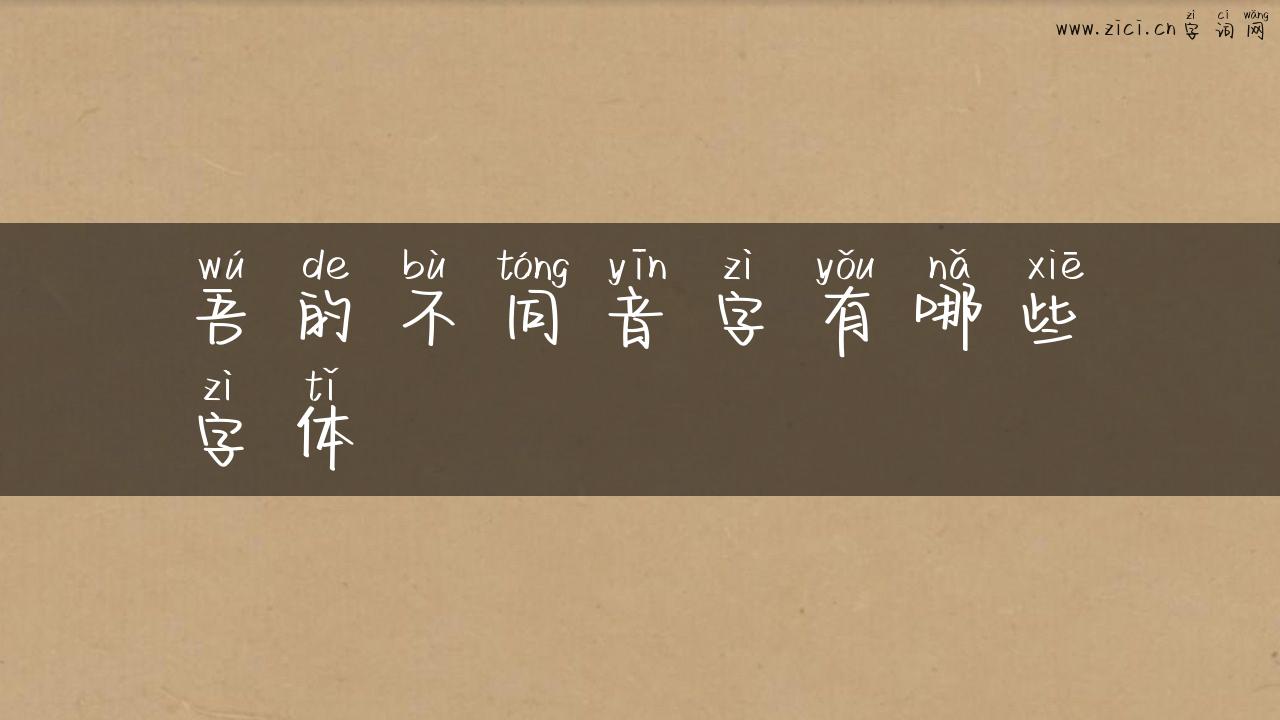 zì cí wǎng
www.zici.cn 字 词 网
wú de bù tóng yīn zì yǒu nǎ xiē
吾 的 不 同 音 字 有 哪 些
zì tǐ
字 体